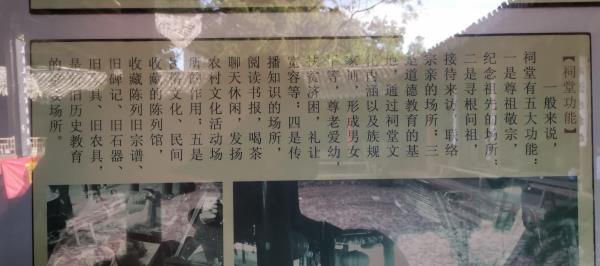 【祠堂功能】
一般来说，
祠堂有五大功能：
一是尊祖敬宗，
纪念祖先的场所；
二是寻根问祖，
接待来访、联络
宗亲的场所；三
是道德教育的基
地，通过祠堂文
化内涵以及族规
家训，形成男女
平等，尊老爱幼，
扶贫济困，礼让
宽容等；四是传
播知识的场所，
阅读书报，喝茶
聊天休闲，发扬
农村文化活动场
所作用；五是
文化、民间
收藏的陈列馆，
收藏陈列旧宗谱、
旧碑记、旧石器、
旧具、旧农具，
是旧历史教育
的场所。